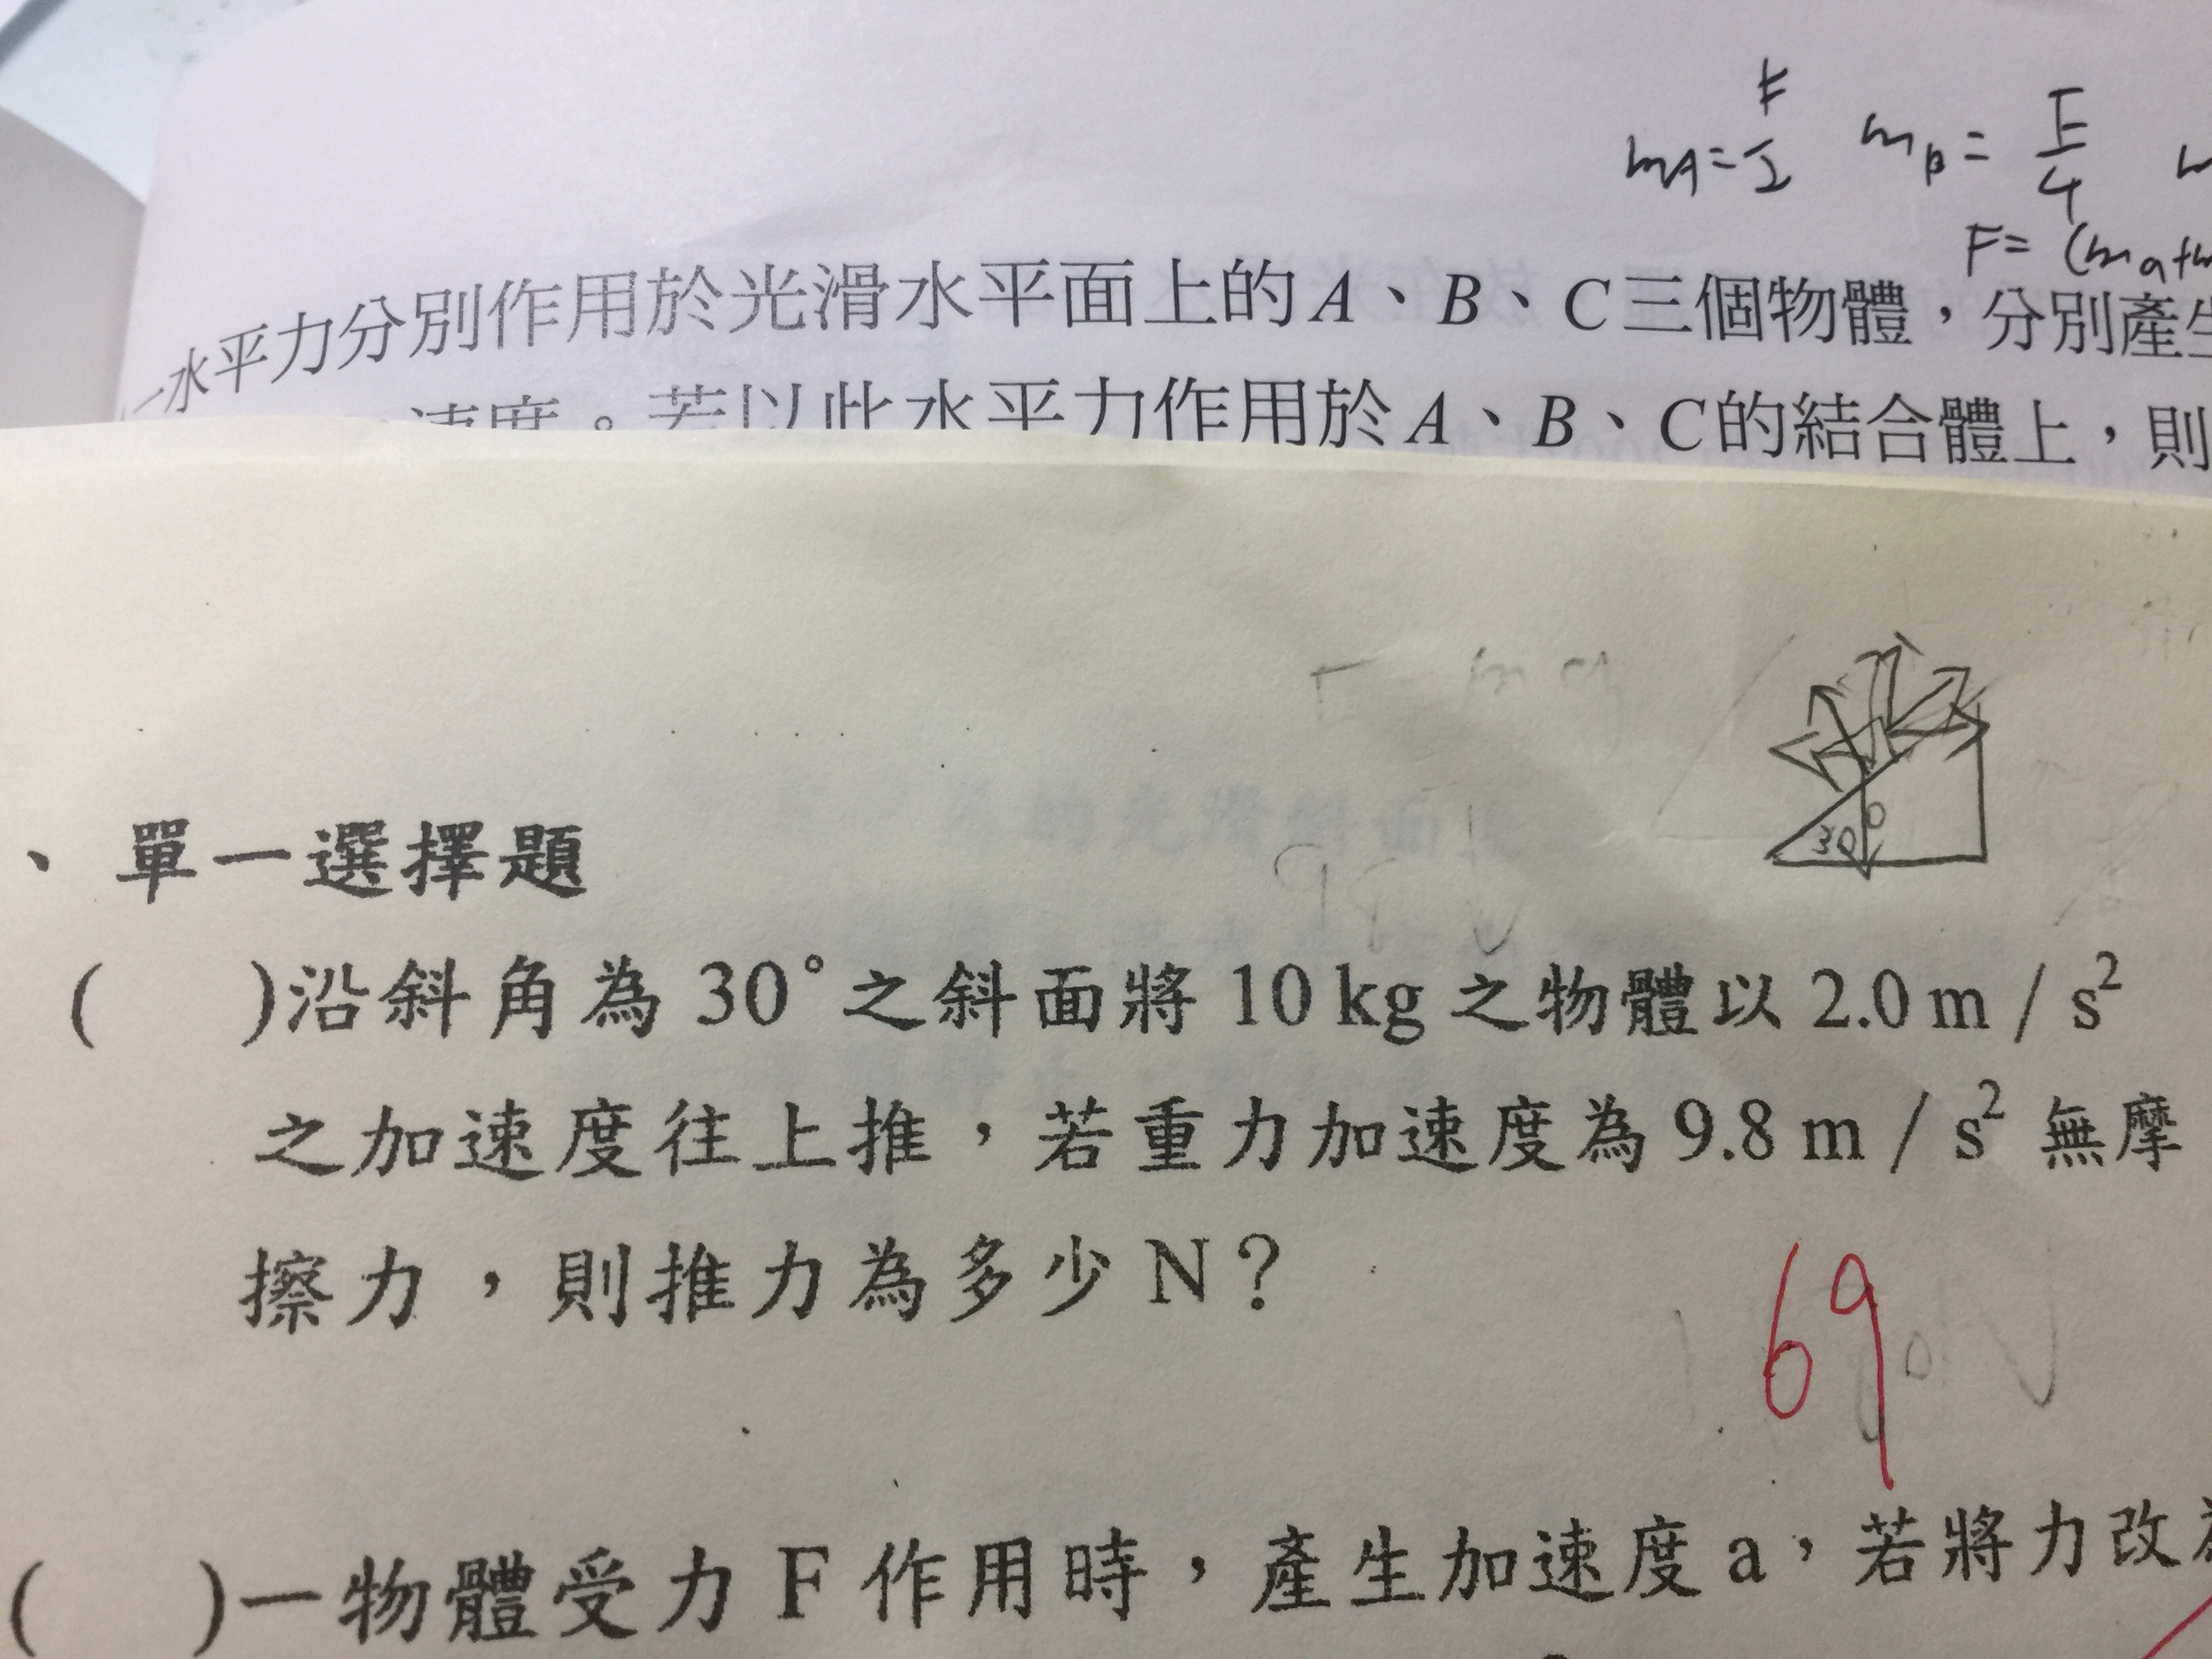 mA=F/2 mB=F/4
F=(ma+m
一水平力分別作用於光滑水平面上的A、B、C三個物體，分別產生
速度。若以此水平力作用於A、B、C的結合體上，則
30°
、單一選擇題
( )沿斜角為 30°之斜面將 10 kg 之物體以 2.0 m / s²
之加速度往上推，若重力加速度為 9.8 m / s² 無摩
擦力，則推力為多少 N？
69
( )一物體受力 F 作用時，產生加速度 a，若將力改為